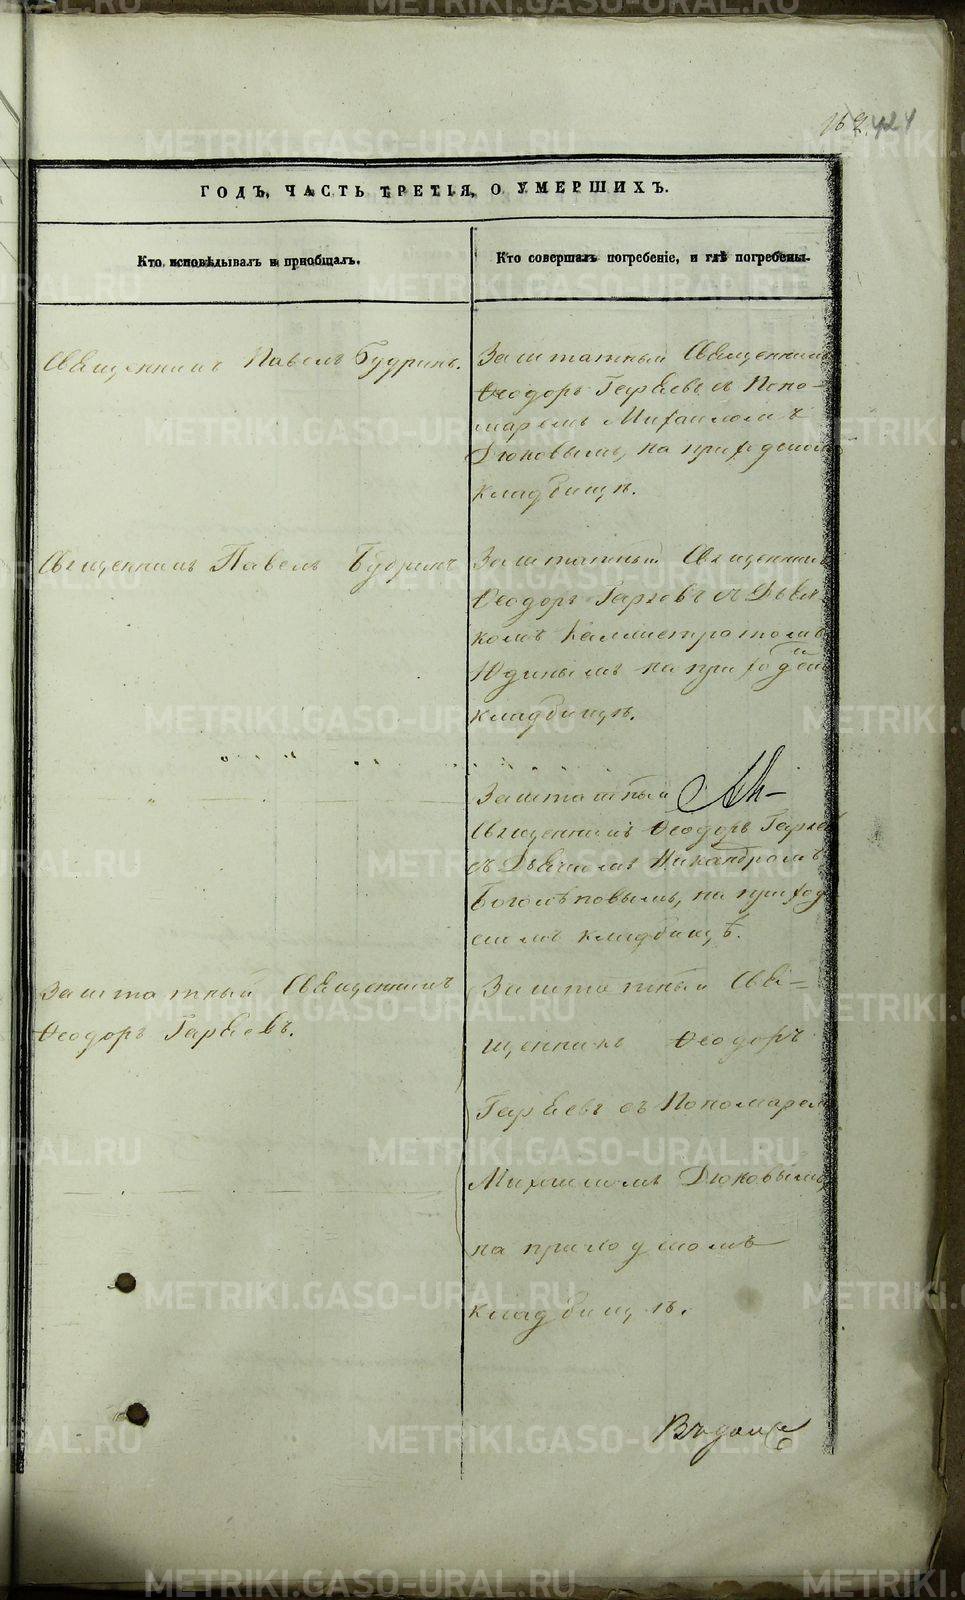 424
ГОДЪ, ЧАСТЬ ТРЕТІЯ, О УМЕРШИХЪ.
Кто исповѣдывалъ и пріобщалъ.
Кто совершалъ погребеніе, и гдѣ погребены.
Священникъ Павелъ Будринъ.
Заштатный Священникъ
Ѳеодоръ Гаряевъ съ Поно-
маремъ Михаиломъ
Дюковымъ, на приходскомъ
кладбищѣ.
Священникъ Павелъ Будринъ
Заштатный Священникъ
Ѳеодоръ Гаряевъ съ Дьяч-
комъ Каллистратомъ
Юдинымъ на приходском
кладбищѣ.
Заштатный
Священникъ Ѳеодоръ Гаряев
съ Дьячкомъ Никандромъ
Боголѣповымъ, на приход
скомъ кладбищѣ.
Заштатный Священникъ
Ѳеодоръ Гаряевъ.
Заштатный Свя-
щенникъ Ѳеодоръ
Гаряевъ съ Пономаремъ
Михаиломъ Дюковымъ,
на приходскомъ
кладбищѣ.
METRIKI.GASO-URAL.RU